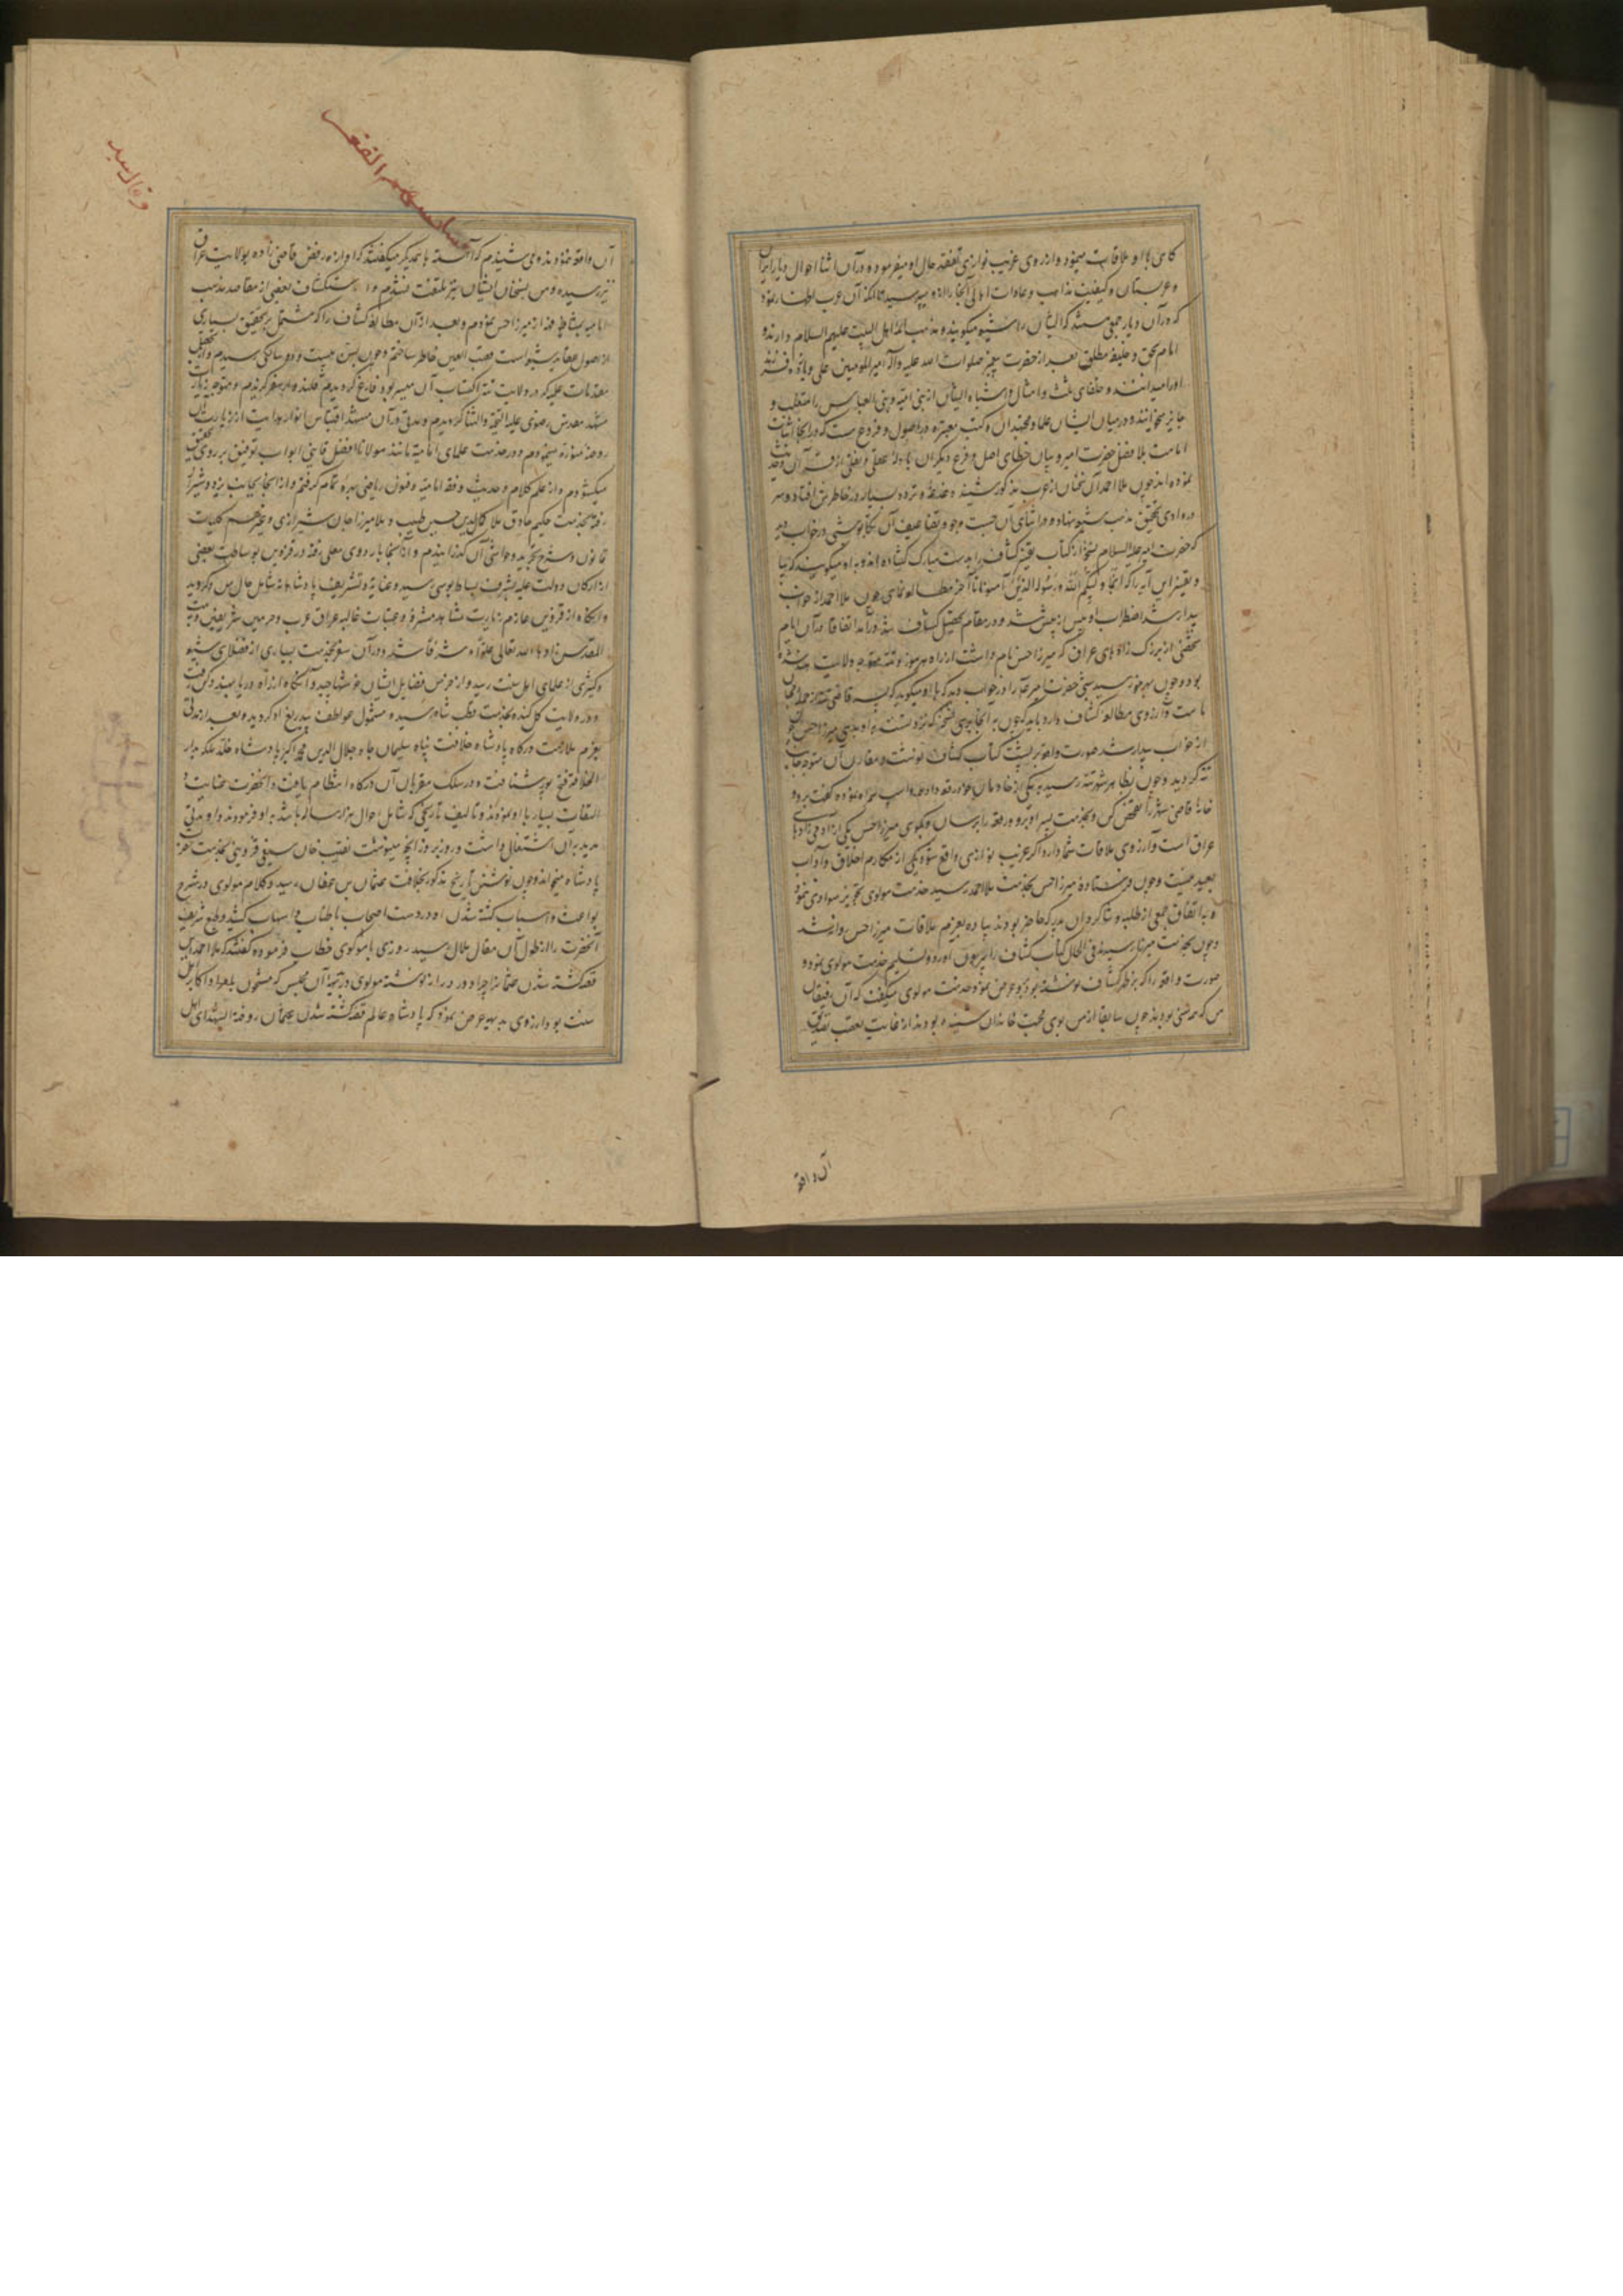 کاهی با او ملاقات مینمود و از روی غریب نوازی تفقد حال او میفرمود و در آن اثنا احوال دیار ایران
و عربستان و کیفیت مذاهب و عادات اهالی آنجا را از و میپرسید تا آنکه آن عرب اظهار نمود
که در آن دیار جمعی هستند که ایشان را شیعه میکویند و مذهب ائمه اهل البیت علیهم السلام دارند و
امام بحق و خلیفه مطلق بعد از حضرت پیغمبر صلوات الله علیه وآله امیر المومنین علی و یازده فرزند
او را میدانند و خلفای ثلث و امثال و اشباه ایشان از بنی امیه و بنی العباس را متغلب و
جایر میخوانند و در میان ایشان علما و مجتهدان و کتب معتبره در اصول و فروع هست که در آنجا اثبات
امامت بلا فصل حضرت امیر و بیان خطای اصل و فرع دیکران بادله عقلی و نقلی از قرآن و حدیث
نموده اند چون ملا احمد آن سخنان از عرب مذکور شنید دغدغه و تردد بسیار در خاطرش افتاد و سر
در وادی تحقیق مذهب شیعه نهاد و در اثنای آن جست وجو
که حضرت امیر علیه السلام نسخه از کتاب تفسیر کشاف را بدست مبارک کشاده اند و به او میکویند که بیا
و تفسیر این آیه را که انما ولیکم الله و رسوله الذین آمنوا تا آخر مطالعه نمای چون ملا احمد از خواب
بیدار شد اضطراب او بیش از پیش شد و در مقام تحصیل کشاف شد و اتفاقا در آن ایام
شخصی از بزرک زاده های عراق که میرزا حسن نام داشت از راه هرموز بولایت هند شده
بود و چون بهرموز رسید شبی حضرت امیر را در خواب دید که با او میکوید که پسر قاضی تته از جمله محبان
ماست و آرزوی مطالعه کشاف دارد باید که چون به آنجا برسی نسخه که نزد تست به او بدهی میرزا حسن چون
از خواب بیدار شد صورت واقعه بر پشت کتاب کشاف نوشت و مقارن آن متوجه جانب
تته کردید و چون بظاهر شهر تته رسید به یکی از خادمان خود رقعه داد و اسب همراه نموده کفت برو و
خانه قاضی شهر را تفحص کن و بخدمت پسر او برو و رقعه را برسان و بکوی میرزا حسن یکی از آدمی زادهای
عراق است و آرزوی ملاقات شما دارد اکر غریب نوازی واقع شود یکی از مکارم اخلاق و آداب
بعید نیست و چون فرستاده میرزا حسن بخدمت ملا احمد رسید خدمت مولوی تجویز سواری ننمود
و به اتفاق جمعی از طلبه و شاکردان پدر که حاضر بودند پیاده بعزم ملاقات میرزا حسن روانه شد
و چون بخدمت میرزا رسید فی الحال کتاب کشاف را بیرون آورد و تسلیم خدمت مولوی نمود و
صورت واقعه را که بر ظهر کشاف نوشته بود بر و عرض نمود و خدمت مولوی میکفت که آن رفیقان
من که همه سنی بودند چون سابقا از من بوی محبت خاندان شنیده بودند از غایت تعجب تصدیق
آن واقعه
آن واقعه نمودند و می شنیدم که آهسته با یکدیکر میکفتند که آوازه رفض قاضی زاده بولایت عراق
نیز رسیده و من بسخنان ایشان نیز ملتفت نشدم و استکشاف بعضی از مقاصد مذهب
امامیه بشافهه از میرزا حسن نمودم و بعد از آن مطالعه کشاف را که مشتمل بر تحقیق بسیاری
از اصول عقاید شیعه است نصب العین خاطر ساختم و چون بسن بیست و دو سالکی رسیدم و از تحصیل
مقدمات علمیه که در ولایت تته اکتساب آن میسر بود فارغ کردیدم قلندروار سفر کزیدم و متوجه زیارت
مشهد مقدس رضوی علیه التحیه والثنا کردیدم و مدتی در آن مشهد اقتباس انوار هدایت از زیارت آن
روضه منوره مینمودم و در خدمت علمای امامیه مانند مولانا افضل قاینی ابواب توفیق بر روی
میکشودم و از علم کلام و حدیث و فقه امامیه و فنون ریاضی بهره تمام کرفتم و از آنجا بجانب یزد و شیراز
رفته بخدمت حکیم حاذق ملا کمال الدین حسین طبیب و ملا میرزا جان شیرازی و غیرهم کلیات
قانون و شرح تجرید و حواشی آن کذرانیدم و از آنجا باردوی معلی رفته در قزوین بوساطت بعضی
از ارکان دولت علیه بشرف بساط بوسی رسید و عنایت و تشریف پادشاهانه شامل حال من کردید
و آنکاه از قزوین عازم زیارت مشاهد مشرفه و عتبات عالیه عراق عرب و حرمین شریفین و بیت
المقدس زادها الله تعالی علوا و شرفا شد و در آن سفر بخدمت بسیاری از فضلای شیعه
و کثیری از علمای اهل سنت رسید و از خرمن فضایل ایشان خوشها چید و آنکاه از راه دریا بهند دکن رفت
و در ولایت کلکنده بخدمت قطب شاه رسیده مشمول عواطف بیدریغ او کردید و بعد از مدتی
بعزم ملازمت درکاه پادشاه خلافت پناه سلیمان جاه جلال الدین محمد اکبر پادشاه خلد ملکه بدار
الخلافه فتح پور شتافت و در سلک مقربان آن درکاه انتظام یافت و آنحضرت عنایت و
التفات بسیار با او نمودند و تالیف تاریخی که شامل احوال هزار ساله باشد به او فرمودند و او مدتی
مدید به آن اشتغال داشت و روز بروز آنچه مینوشت نقیب خان سیفی قزوینی بخدمت حضرت
پادشاه میخواند و چون نوشتن تاریخ مذکور بخلافت عثمان بن عفان رسید و کلام مولوی در شرح
بواعث و اسباب کشته شدن او در دست اصحاب باطناب و اسهاب کشید و طبع شریف
آنحضرت را از طول آن مقال ملال رسید روزی با مولوی خطاب فرموده کفتند که ملا احمد این
قصه کشته شدن عثمان را چرا دور و دراز نوشته مولوی در بدیهه آن مجلس که مشحون بامرا و اکابر اهل
سنت بود از روی بدیهه عرض نمود که پادشاه عالم قصه کشته شدن عثمان روضة الشهدای اهل